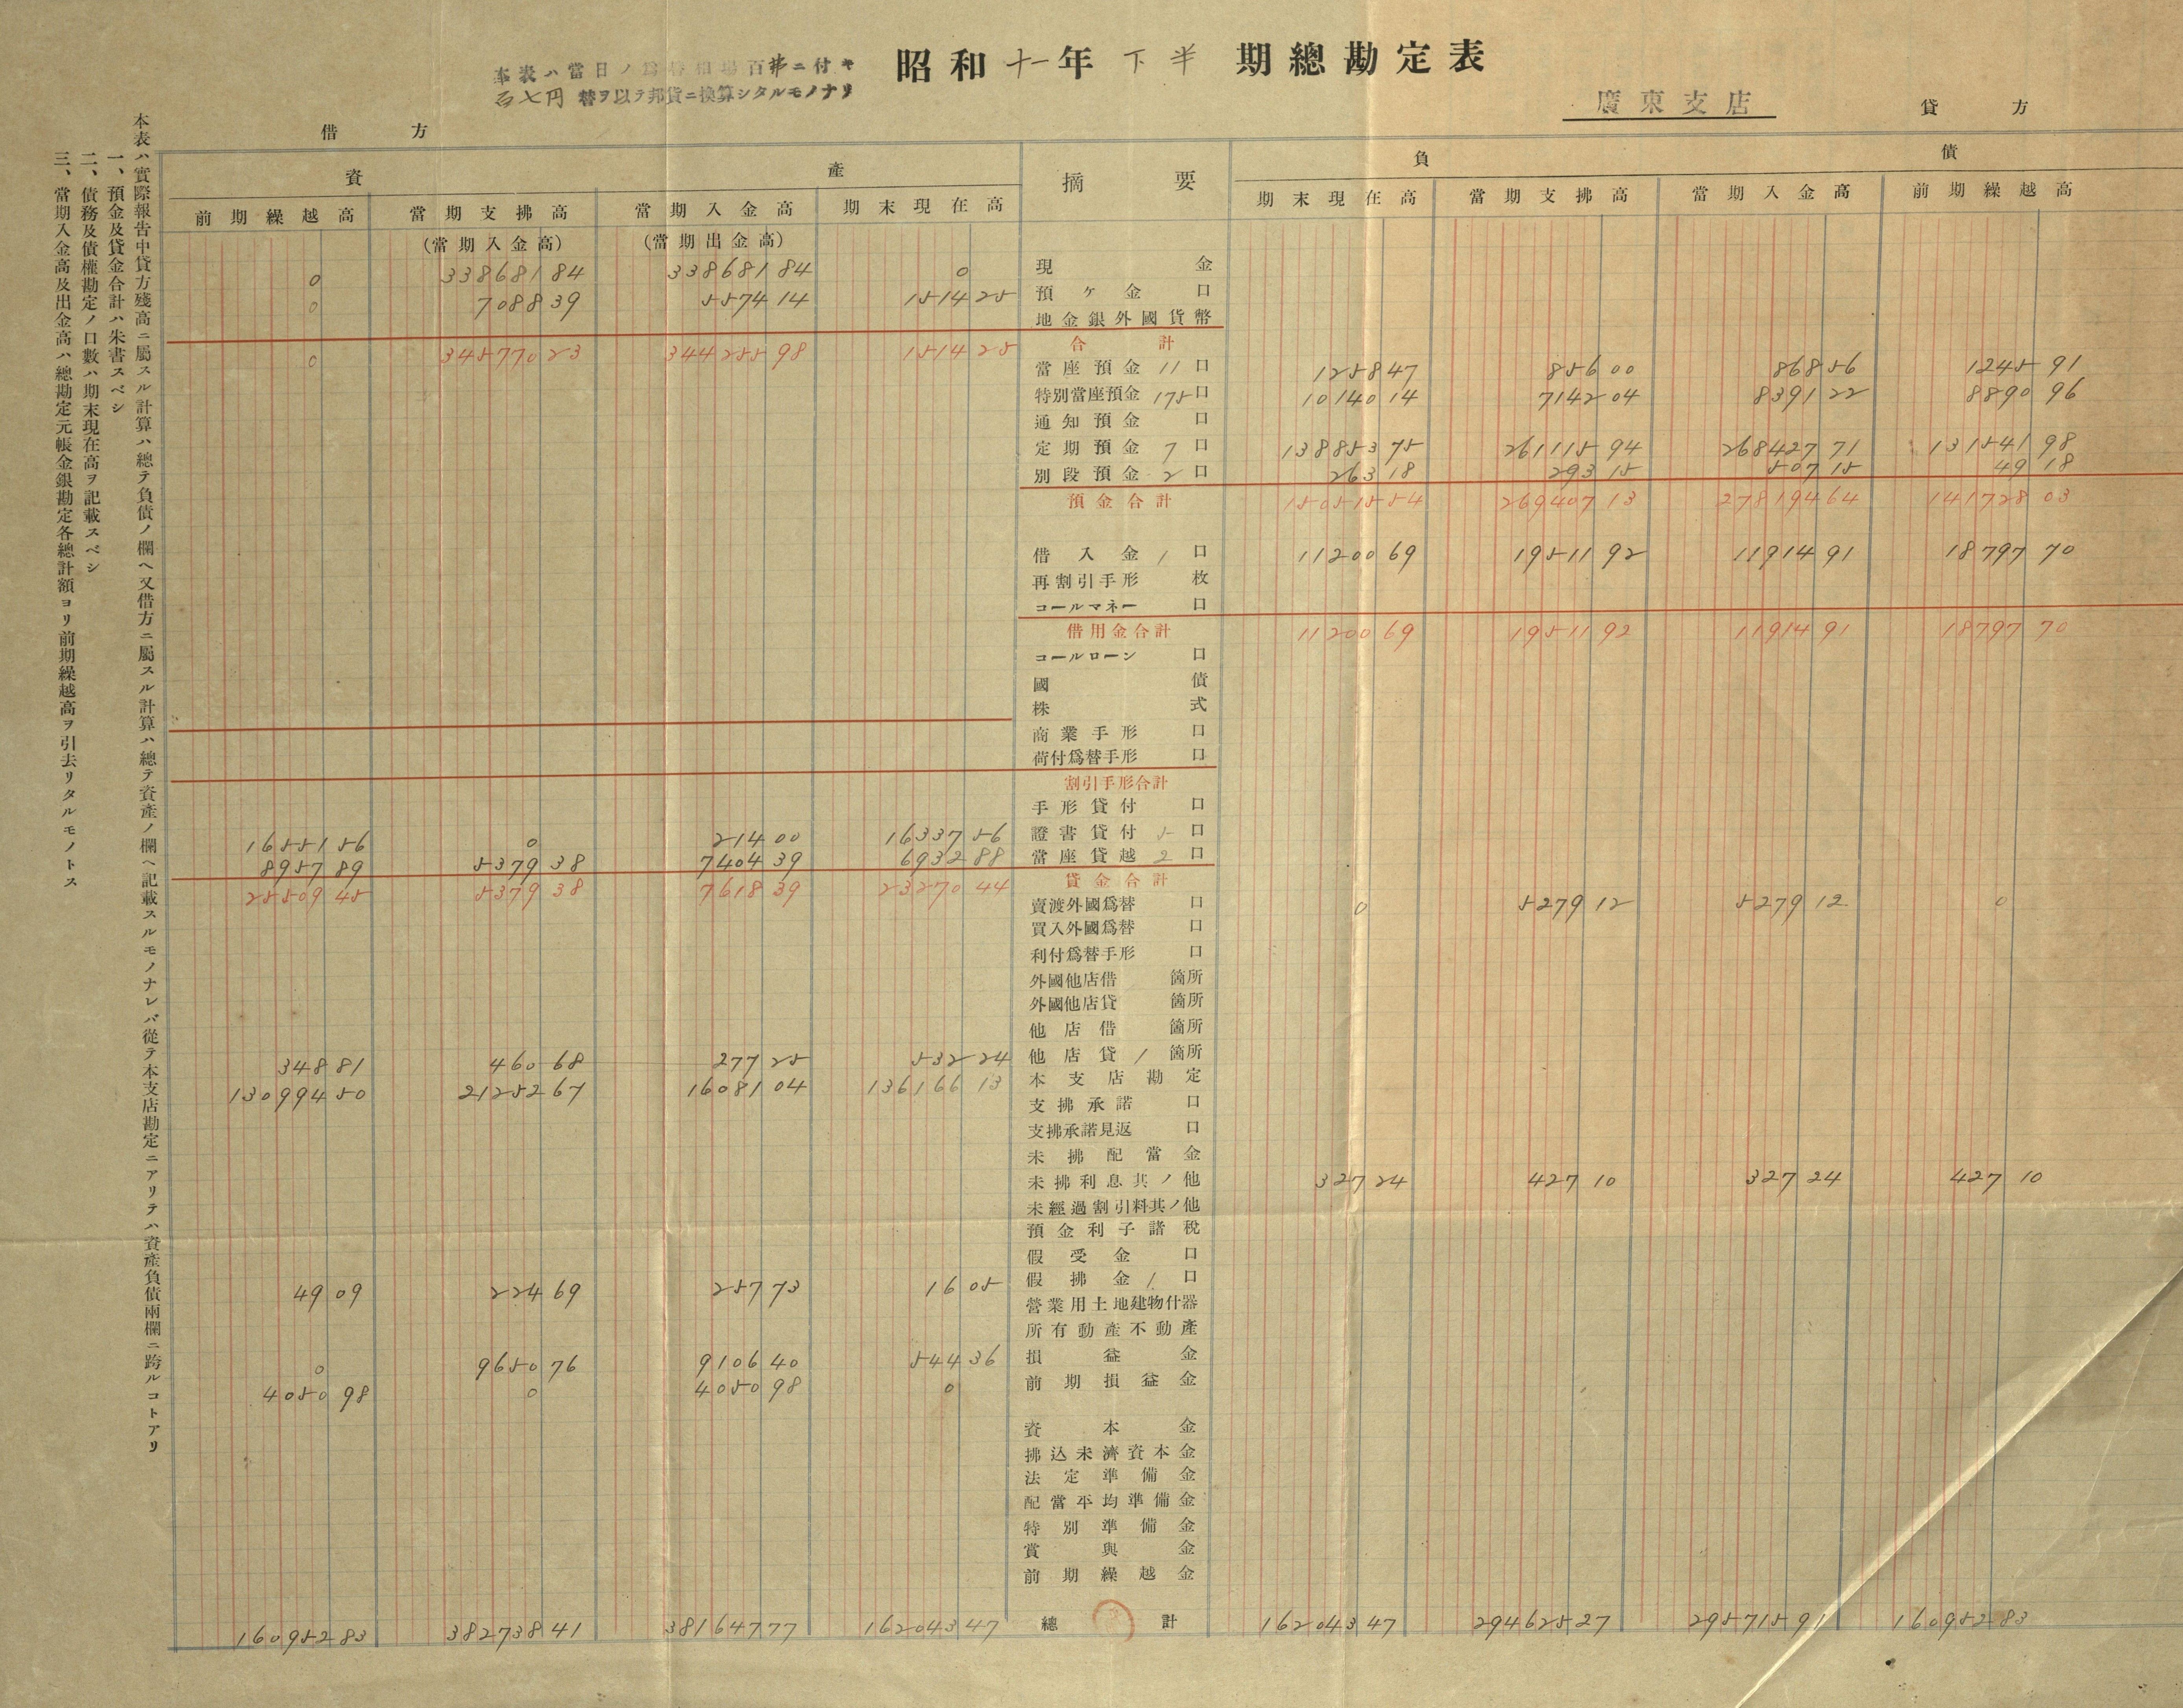 昭和十一年下半期總勘定表
本表ハ當日ノ爲替相場百弗ニ付キ
百七円替ヲ以テ邦貨ニ換算シタルモノナリ
廣東支店
借方
貸方
本表ハ實際報告中貸方殘高ニ屬スル計算ハ總テ負債ノ欄ヘ又借方ニ屬スル計算ハ總テ資產ノ欄ヘ記載スルモノナレバ從テ本支店勘定ニアリテハ資產負債兩欄ニ跨ルコトアリ
一、預金及貸金合計ハ朱書スベシ
二、債務及債權勘定ノ口數ハ期末現在高ヲ記載スベシ
三、當期入金高及出金高ハ總勘定元帳金銀勘定各總計額ヨリ前期繰越高ヲ引去リタルモノトス
資產 摘要 負債
前期繰越高 當期支拂高 當期入金高 期末現在高 期末現在高 當期支拂高 當期入金高 前期繰越高
(當期入金高) (當期出金高)
0 338681 84 338681 84 0 現金
0 7088 39 5574 14 1514 25 預ケ金 口
地金銀外國貨幣
0 345770 23 344255 98 1514 25 合計
當座預金 11口 1258 47 856 00 868 56 1245 91
特別當座預金 175口 10140 14 7142 04 8391 22 8890 96
通知預金 口
定期預金 7口 138853 75 261115 94 268427 71 131541 98
別段預金 2口 263 18 293 15 507 15 49 18
預金合計 150515 54 269407 13 278194 64 141728 03
借入金 1口 11200 69 19511 92 11914 91 18797 70
再割引手形 枚
コールマネー 口
借用金合計 11200 69 19511 92 11914 91 18797 70
コールローン 口
國債
株式
商業手形 口
荷付爲替手形 口
割引手形合計
手形貸付 口
16551 56 0 214 00 16337 56 證書貸付 5口
8957 89 5379 38 7404 39 6932 88 當座貸越 2口
25509 45 5379 38 7618 39 23270 44 貸金合計
賣渡外國爲替 口 0 5279 12 5279 12 0
買入外國爲替 口
利付爲替手形 口
外國他店借 箇所
外國他店貸 箇所
他店借 箇所
348 81 460 68 277 25 532 24 他店貸 1箇所
130994 50 21252 67 16081 04 136166 13 本支店勘定
支拂承諾 口
支拂承諾見返 口
未拂配當金
未拂利息其ノ他 327 24 427 10 327 24 427 10
未經過割引料其ノ他
預金利子諸稅
假受金 口
49 09 224 69 257 73 16 05 假拂金 1口
營業用土地建物什器
所有動產不動產
0 9650 76 9106 40 544 36 損益金
4050 98 0 4050 98 0 前期損益金
資本金
拂込未濟資本金
法定準備金
配當平均準備金
特別準備金
賞與金
前期繰越金
160952 83 382738 41 381647 77 162043 47 總計 162043 47 294625 27 295715 91 160952 83